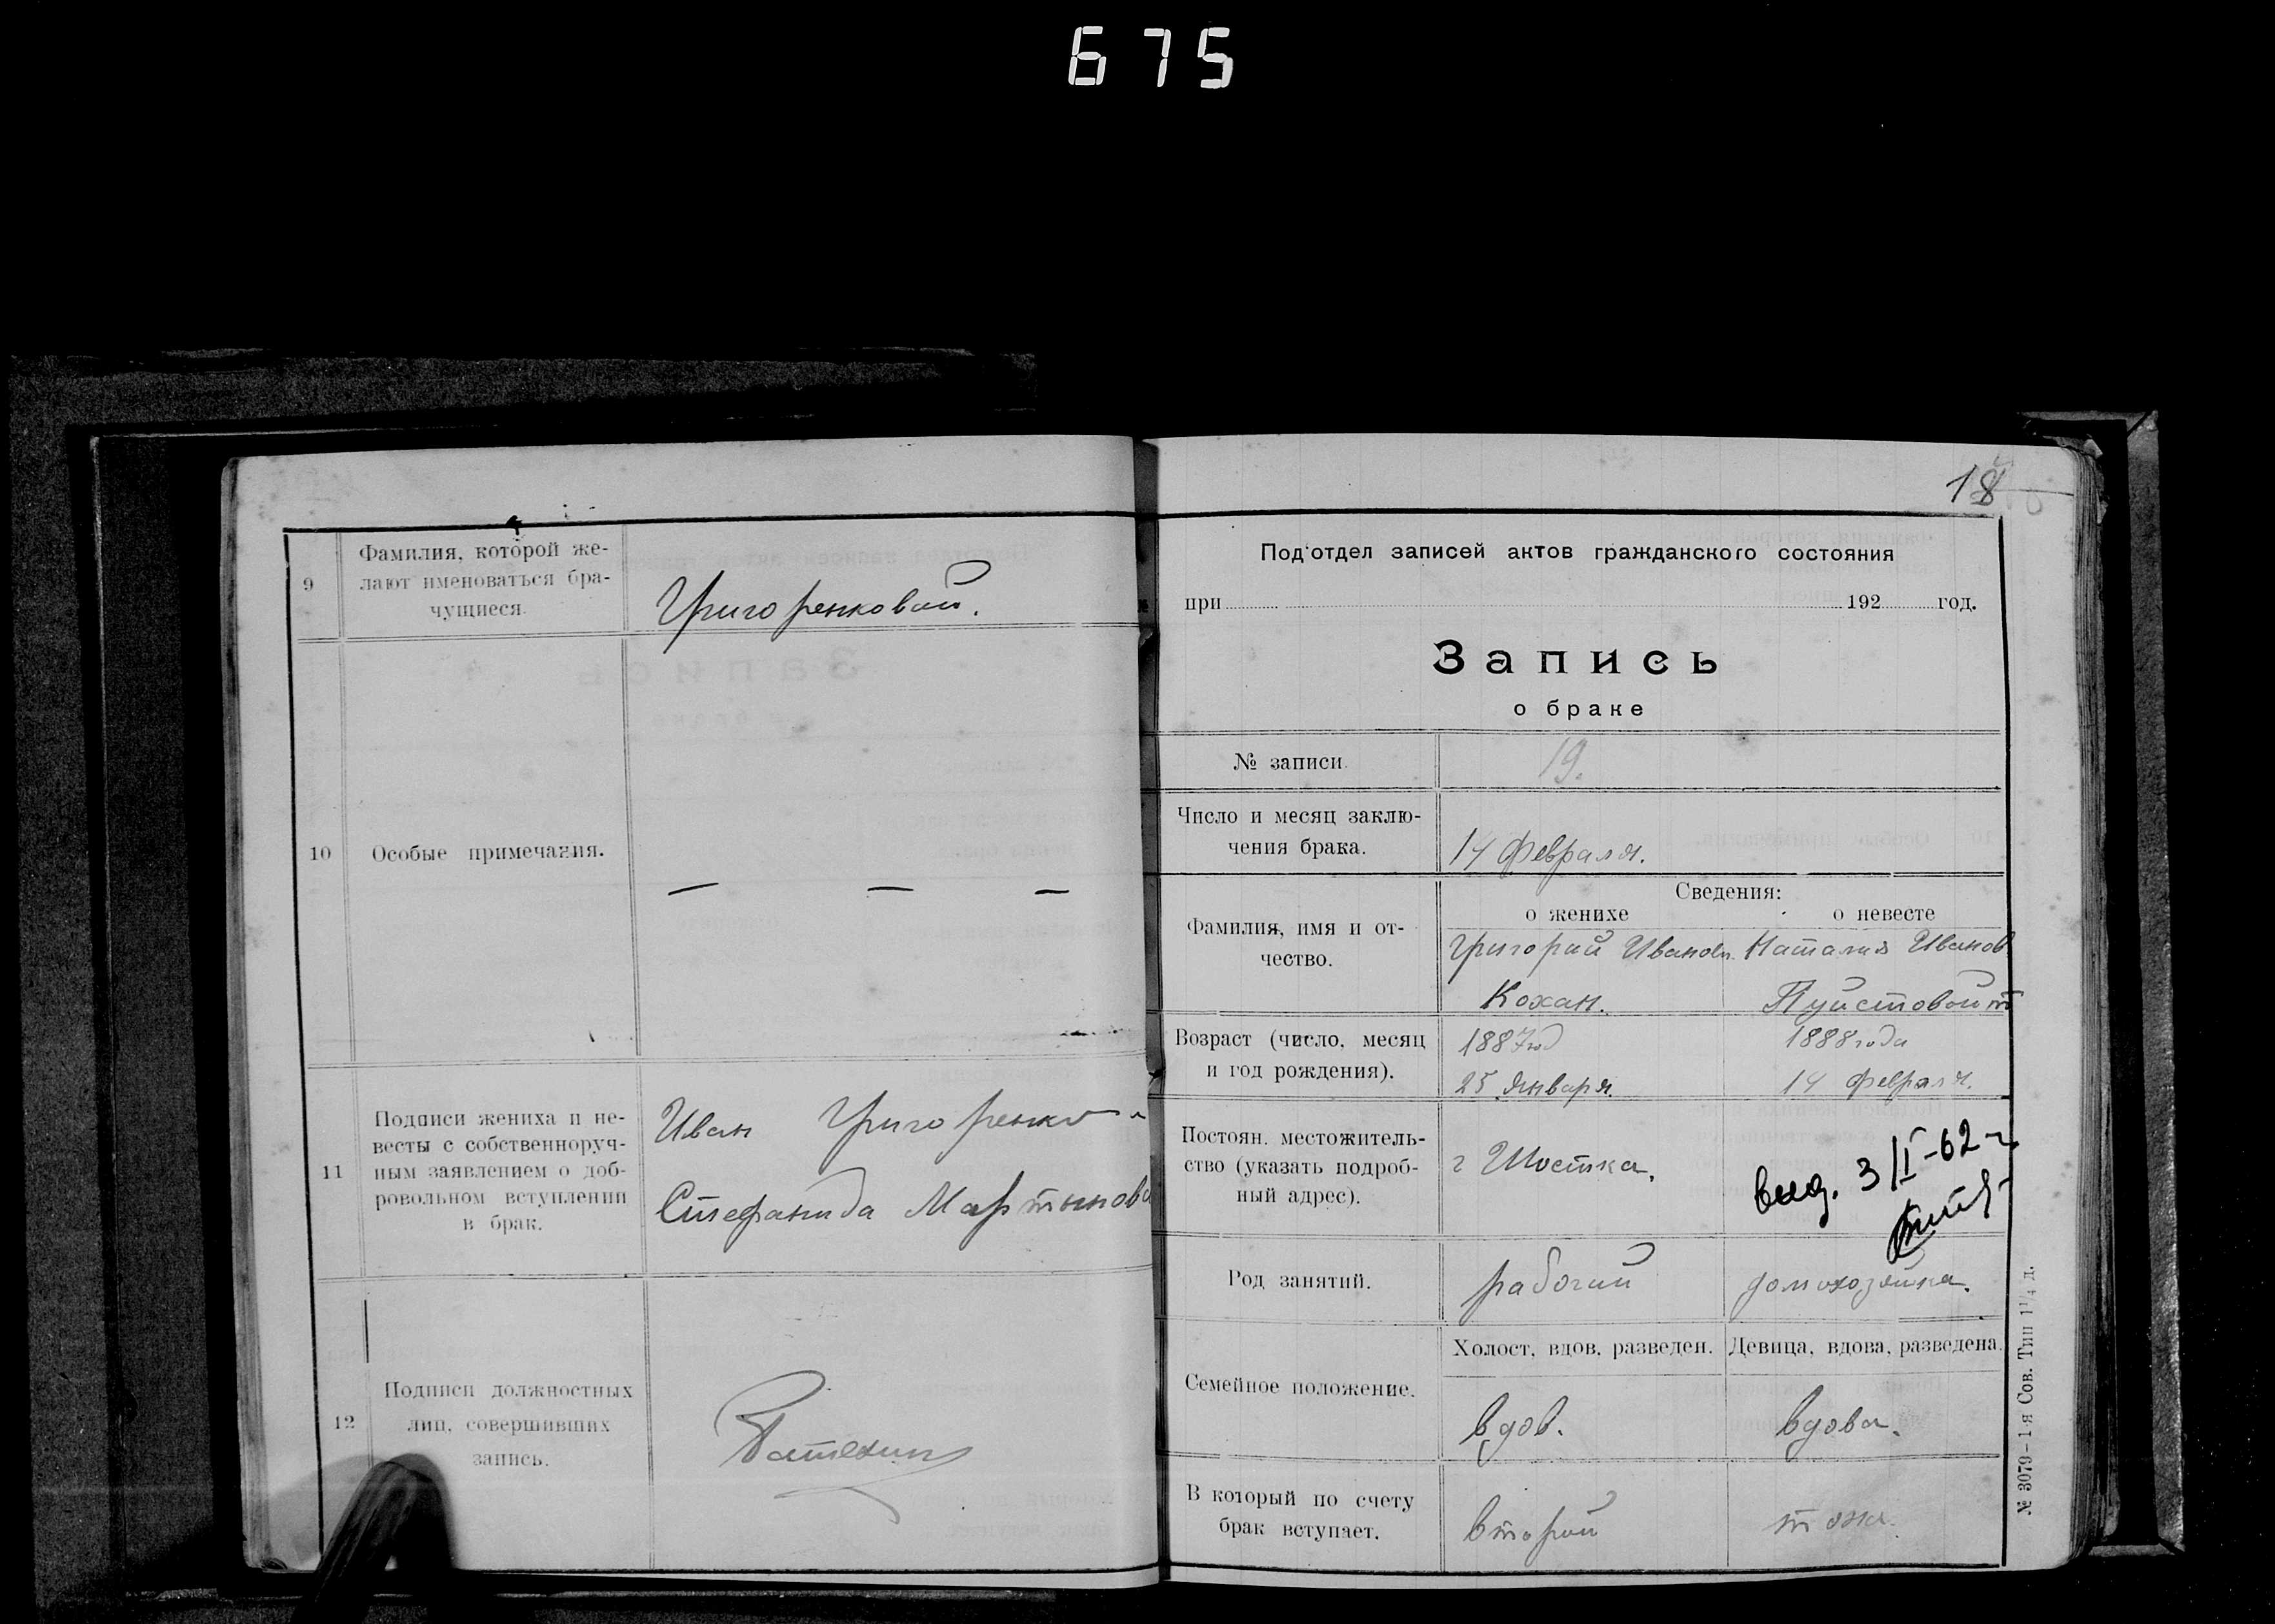 675
9
Фамилия, которой же-
лают именоваться бра-
чущиеся.
Григоренковой.
10
Особые примечания.
— — —
11
Подписи жениха и не-
весты с собственноруч-
ным заявлением о доб-
ровольном вступлении
в брак.
Иван Григоренко
Стефанида Мартынова
12
Подписи должностных
лиц, совершивших
запись.
18
Под'отдел записей актов гражданского состояния
при 192 год.
Запись
о браке
№ записи.
19.
Число и месяц заклю-
чения брака.
14 февраля.
Сведения:
о женихе о невесте
Фамилия, имя и от-
чество.
Григорий Иванов. Наталия Иванов
Кохан.
Возраст (число, месяц
и год рождения).
1887 год 1888 года
25 Января. 14 февраля.
Постоян. местожитель-
ство (указать подроб-
ный адрес).
г Шостка.
выд. 3/I-62 г
Род занятий.
рабочий домохозяйка.
Семейное положение.
Холост, вдов, разведен. Девица, вдова, разведена.
вдов. вдова.
В который по счету
брак вступает.
второй тоже.
№ 3079—1-я Сов. Тип 1¹/₄ д.